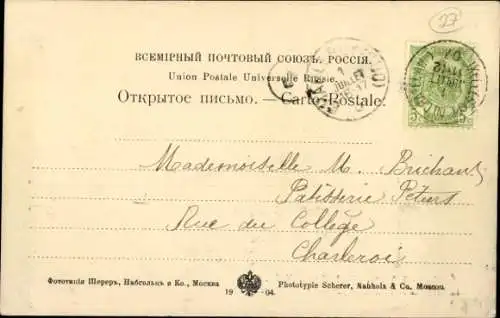 27
ВСЕМІРНЫЙ ПОЧТОВЫЙ СОЮЗЪ. РОССІЯ.
Union Postale Universelle Russie.
Открытое письмо. — Carte Postale.
1
JUILLET
Mademoiselle M. Brichant
Patisserie Peters
Rue du Collège
Charleroi
Фототипія Шереръ, Набгольцъ и Ко., Москва
19 04.
Phototypie Scherer, Nabholz & Co. Moscou